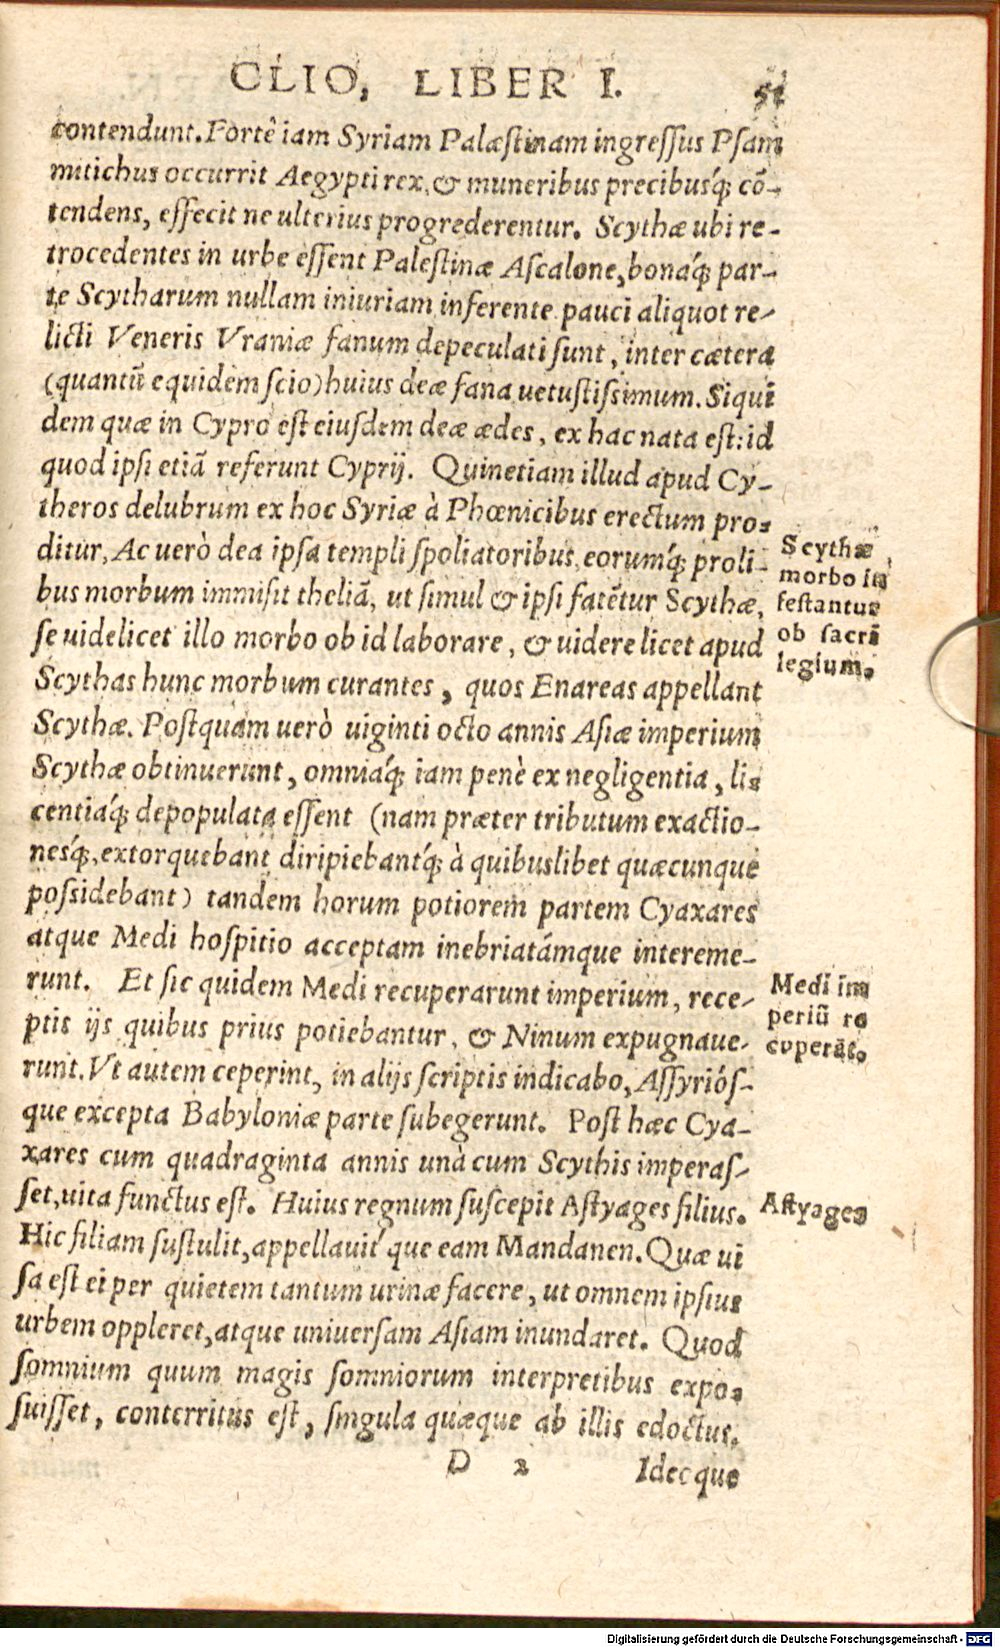 CLIO, LIBER I. 51
contendunt. Fortè iam Syriam Palæstinam ingressus Psam
mitichus occurrit Aegypti rex, & muneribus precibusq́; cō-
tendens, effecit ne ulterius progrederentur. Scythæ ubi re-
trocedentes in urbe essent Palestinæ Ascalone, bonaq́; par-
te Scytharum nullam iniuriam inferente pauci aliquot re-
licti Veneris Vraniæ fanum depeculati sunt, inter cætera
(quantū equidem scio) huius deæ fana uetustissimum. Siqui
dem quæ in Cypro est eiusdem deæ ædes, ex hac nata est: id
quod ipsi etiā referunt Cyprij. Quinetiam illud apud Cy-
theros delubrum ex hoc Syriæ à Phœnicibus erectum pro-
ditur, Ac uerò dea ipsa templi spoliatoribus, eorumq́; proli-
bus morbum immisit theliā, ut simul & ipsi fatētur Scythæ,
se uidelicet illo morbo ob id laborare, & uidere licet apud
Scythas hunc morbum curantes, quos Enareas appellant
Scythæ. Postquàm uerò uiginti octo annis Asiæ imperium
Scythæ obtinuerunt, omniaq́; iam penè ex negligentia, li-
centiaq́; depopulata essent (nam præter tributum exactio-
nesq́;, extorquebant diripiebantq́; à quibuslibet quæcunque
possidebant) tandem horum potiorem partem Cyaxares
atque Medi hospitio acceptam inebriatámque intereme-
runt. Et sic quidem Medi recuperarunt imperium, rece-
ptis ijs quibus prius potiebantur, & Ninum expugnaue-
runt. Vt autem ceperint, in alijs scriptis indicabo, Assyriós-
que excepta Babyloniæ parte subegerunt. Post hæc Cya-
xares cum quadraginta annis unà cum Scythis imperas-
set, uita functus est. Huius regnum suscepit Astyages filius.
Hic filiam sustulit, appellauit́ que eam Mandanen. Quæ ui
sa est ei per quietem tantum urinæ facere, ut omnem ipsius
urbem oppleret, atque uniuersam Asiam inundaret. Quod
somnium quum magis somniorum interpretibus expo-
suisset, conterritus est, singula quæque ab illis edoctus.
D 2 Idecque
Scythæ
morbo in
festantur
ob sacri
legium.
Medi im
periū re
cuperāt.
Astyages
Digitalisierung gefördert durch die Deutsche Forschungsgemeinschaft - DFG